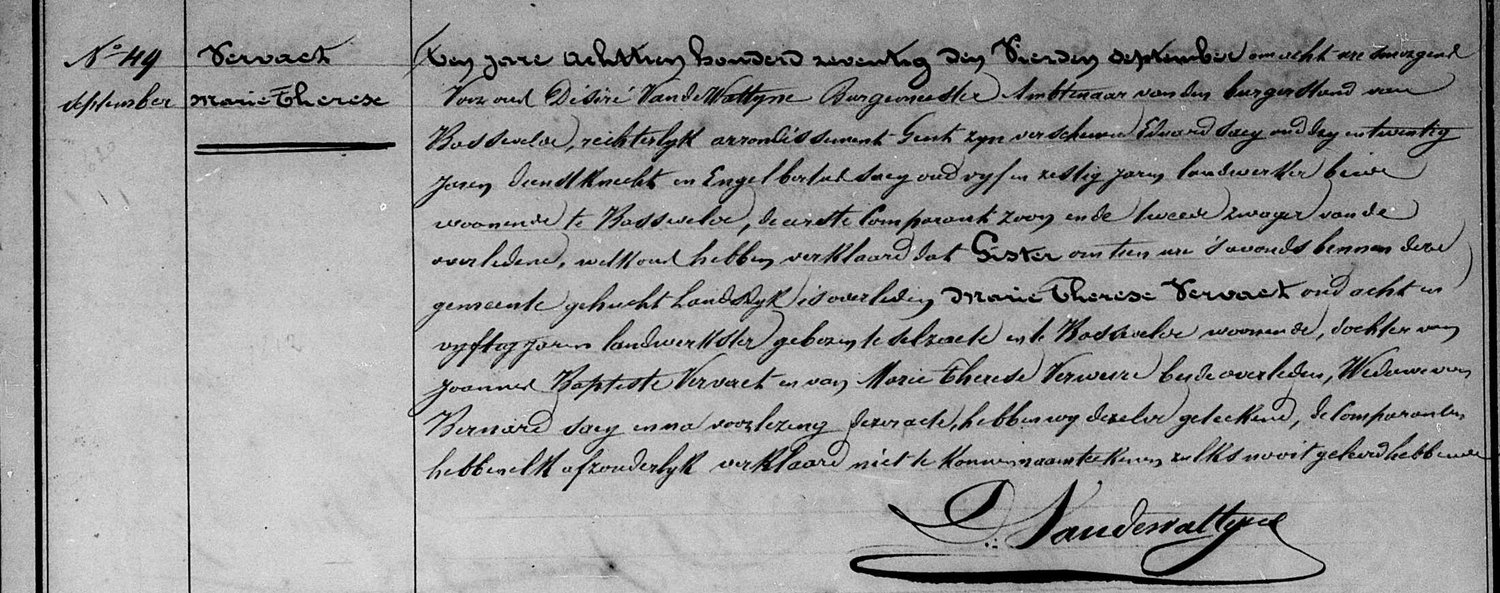 N° 49
September
Vervaet
Marie Therese
Ten jare achttien honderd zeventig den Vierden september om acht ure smorgend
Voor ons Désiré VandeWattyne Burgemeester Ambtenaar van den burgerstand van
Bassevelde, rechterlyk arrondissement Gent zyn verschenen Eduard Saey oud dry en twentig
jaren dienstknecht en Engelbertus Saey oud vyf en zestig jaren landwerker beide
woonende te Bassevelde, de eerste Comparant zoon en de tweede zwager van de
overledene, welke ons hebben verklaard dat Gister om tien ure 's avonds binnen deze
gemeente gehucht Landsdyk is overleden Marie Therese Vervaet oud acht en
vyftig jaren landwerkster geboren te Selzaete en te Bassevelde woonende, dochter van
Joannes Baptiste Vervaet en van Marie Therese Verweire beide overleden, Weduwe van
Bernard Saey en na voorlezing dezer acte, hebben wy dezelve geteekend, de Comparanten
hebben elk afzonderlyk verklaard niet te konnen naamteekenen zulks nooit geleerd hebbende
D. Vandewattyne